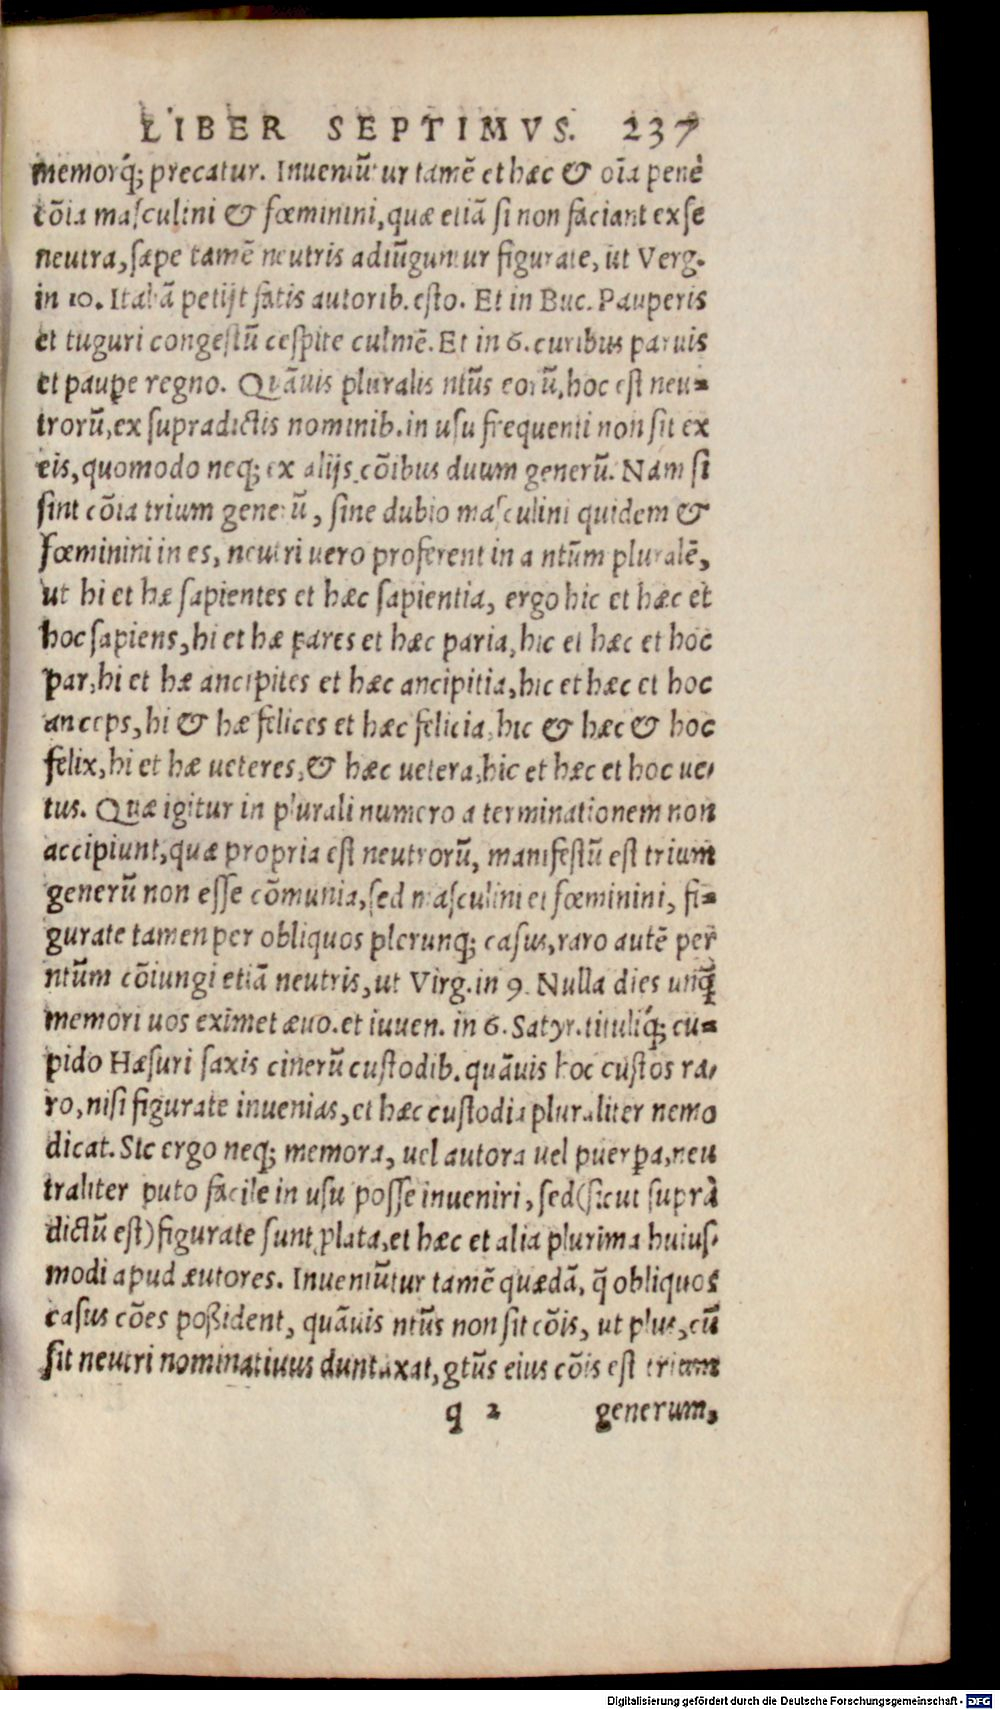 LIBER SEPTIMVS. 237
memorq́; precatur. Inueniũtur tamẽ et hæc & oĩa penè
cõia masculini & fœminini, quæ etiã si non faciant ex se
neutra, sæpe tamẽ neutris adiũguntur figurate, ut Verg.
in 10. Italiã petijt fatis autorib. esto. Et in Buc. Pauperis
et tuguri congestũ cespite culmẽ. Et in 6. curibus paruis
et paupe regno. Quãuis pluralis ntũs eorũ, hoc est neu-
trorũ, ex supradictis nominib. in usu frequenti non sit ex
eis, quomodo neq; ex alijs cõibus duum generũ. Nam si
sint cõia trium generũ, sine dubio masculini quidem &
fœminini in es, neutri uero proferent in a ntũm pluralẽ,
ut hi et hæ sapientes et hæc sapientia, ergo hic et hæc et
hoc sapiens, hi et hæ pares et hæc paria, hic et hæc et hoc
par, hi et hæ ancipites et hæc ancipitia, hic et hæc et hoc
anceps, hi & hæ felices et hæc felicia, hic & hæc & hoc
felix, hi et hæ ueteres, & hæc uetera, hic et hæc et hoc ue-
tus. Quæ igitur in plurali numero a terminationem non
accipiunt, quæ propria est neutrorũ, manifestũ est trium
generũ non esse cõmunia, sed masculini et fœminini, fi-
gurate tamen per obliquos plerunq; casus, raro autẽ per
ntũm cõiungi etiã neutris, ut Virg. in 9. Nulla dies unq̃
memori uos eximet æuo. et iuuen. in 6. Satyr. tituliq́; cu-
pido Hæsuri saxis cinerũ custodib. quãuis hoc custos ra-
ro, nisi figurate inuenias, et hæc custodia pluraliter nemo
dicat. Sic ergo neq; memora, uel autora uel puerpa, neu
traliter puto facile in usu posse inueniri, sed (sicut suprà
dictũ est) figurate sunt plata, et hæc et alia plurima huius-
modi apud autores. Inueniũtur tamẽ quædã, q̃ obliquos
casus cões poßident, quãuis ntũs non sit cõis, ut plus, cũ
sit neutri nominatiuus duntaxat, gtũs eius cõis est trium
q 2 generum,
Digitalisierung gefördert durch die Deutsche Forschungsgemeinschaft - DFG